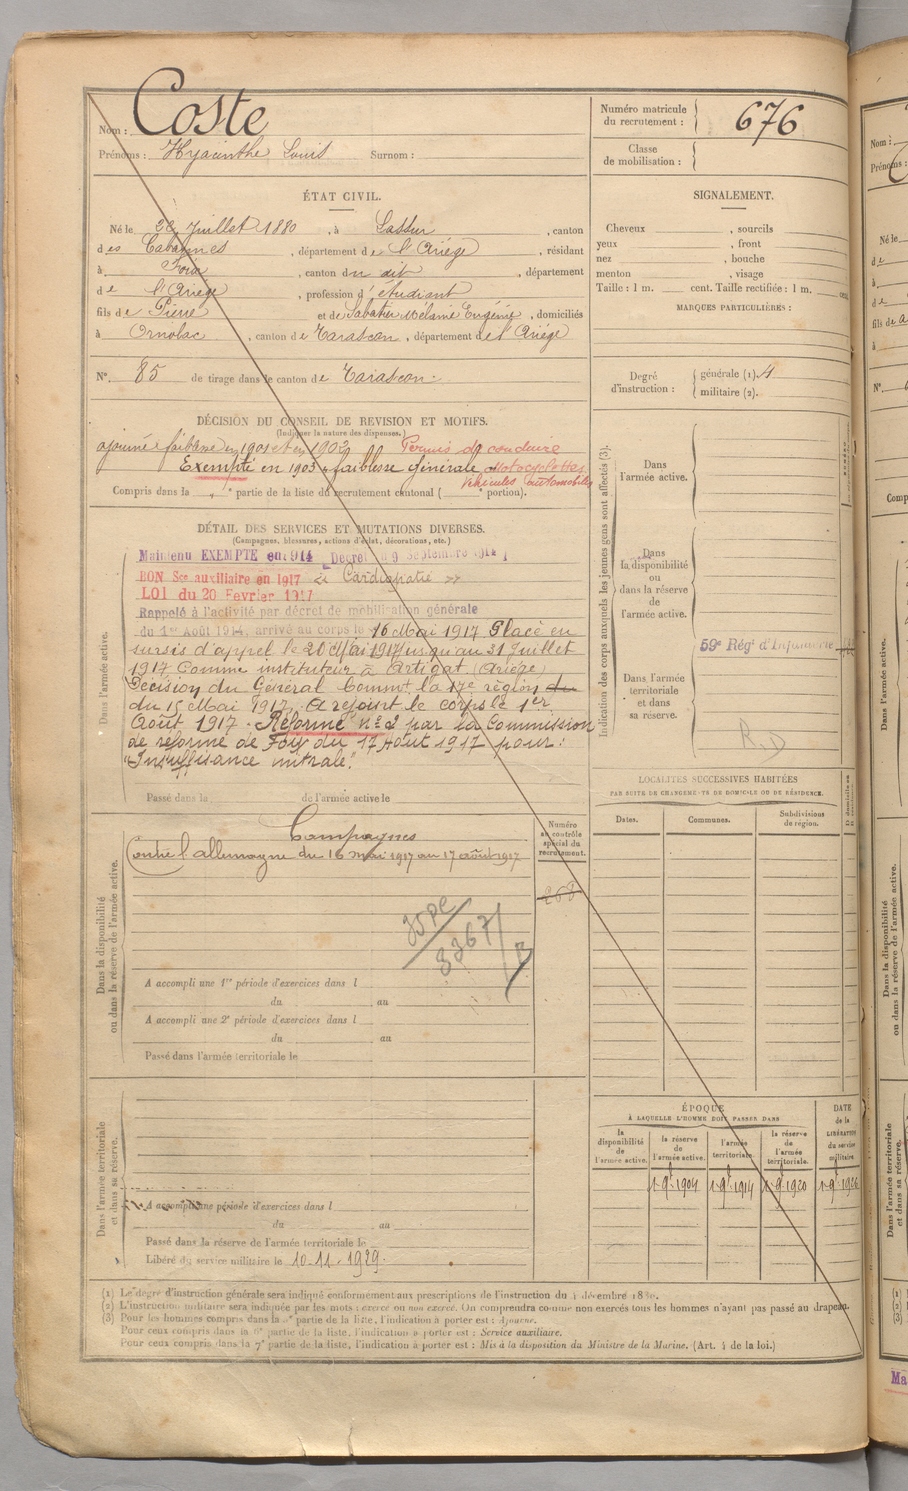 Nom : Coste
Prénoms : Hyacinthe Louis Surnom :
Numéro matricule du recrutement : 676
Classe de mobilisation :
ÉTAT CIVIL.
Né le 28 Juillet 1880, à Lassur, canton
des Cabannes, département de l'Ariège, résidant
à Foix, canton du dit, département
de l'Ariège, profession d'étudiant
fils de Pierre et de Sabatier Mélanie Eugénie, domiciliés
à Ornolac, canton de Tarascon, département de l'Ariège
N° 85 de tirage dans le canton de Tarascon.
SIGNALEMENT.
Cheveux , sourcils
yeux , front
nez , bouche
menton , visage
Taille : 1 m. cent. Taille rectifiée : 1 m. cent.
MARQUES PARTICULIÈRES :
Degré d'instruction : générale (1). 4
militaire (2).
DÉCISION DU CONSEIL DE REVISION ET MOTIFS.
(Indiquer la nature des dispenses.)
ajourné faiblesse en 1901 et en 1902 Permis de conduire
Exempté en 1903 faiblesse générale Motocyclettes
Véhicules automobiles
Compris dans la " partie de la liste du recrutement cantonal ( portion).
DÉTAIL DES SERVICES ET MUTATIONS DIVERSES.
(Campagnes, blessures, actions d'éclat, décorations, etc.)
Dans l'armée active.
Maintenu EXEMPTE en 1914 Décret du 9 Septembre 1914
BON Sce auxiliaire en 1917 « Cardiopatie »
LOI du 20 Fevrier 1917
Rappelé à l'activité par décret de mobilisation générale
du 1er Août 1914, arrivé au corps le 16 Mai 1917 Placé en
sursis d'appel le 20 Mai 1917 jusqu'au 31 Juillet
1917 Comme instituteur à Artigat (Ariège)
Décision du Général Commt la 17e région du
du 15 Mai 1917. A rejoint le corps le 1er
Août 1917. Réformé n° 2 par la Commission
de réforme de Foix du 17 Août 1917 pour :
"Insuffisance mitrale".
Passé dans la de l'armée active le
Dans la disponibilité ou dans la réserve de l'armée active.
Campagnes
Contre l'allemagne du 16 mai 1917 au 17 août 1917
Numéro au contrôle spécial du recrutement.
268
3367
A accompli une 1re période d'exercices dans l
du au
A accompli une 2e période d'exercices dans l
du au
Passé dans l'armée territoriale le
Dans l'armée territoriale et dans sa réserve.
A accompli une période d'exercices dans l
du au
Passé dans la réserve de l'armée territoriale le
Libéré du service militaire le 10-11-1929.
Indication des corps auxquels les jeunes gens sont affectés (3).
Dans l'armée active.
Dans la disponibilité ou dans la réserve de l'armée active.
Dans l'armée territoriale et dans sa réserve.
59e Rég d'Infanterie
R.D
LOCALITÉS SUCCESSIVES HABITÉES
PAR SUITE DE CHANGEMENTS DE DOMICILE OU DE RÉSIDENCE.
Dates. Communes. Subdivisions de région.
ÉPOQUE
À LAQUELLE L'HOMME DOIT PASSER DANS
la disponibilité de l'armée active. la réserve de l'armée active. l'armée territoriale. la réserve de l'armée territoriale. DATE de la LIBÉRATION du service militaire.
1 9bre 1904 1 9bre 1914 1 9bre 1920 1 9bre 1926
(1) Le degré d'instruction générale sera indiqué conformément aux prescriptions de l'instruction du 4 décembre
(2) L'instruction militaire sera indiquée par les mots : exercé ou non exercé. On comprendra comme non exercés tous les hommes n'ayant pas passé au drapeau.
(3) Pour les hommes compris dans la partie de la liste, l'indication à porter est : Ajourné.
Pour ceux compris dans la partie de la liste, l'indication à porter est : Service auxiliaire.
Pour ceux compris dans la 7e partie de la liste, l'indication à porter est : Mis à la disposition du Ministre de la Marine. (Art. 4 de la loi.)